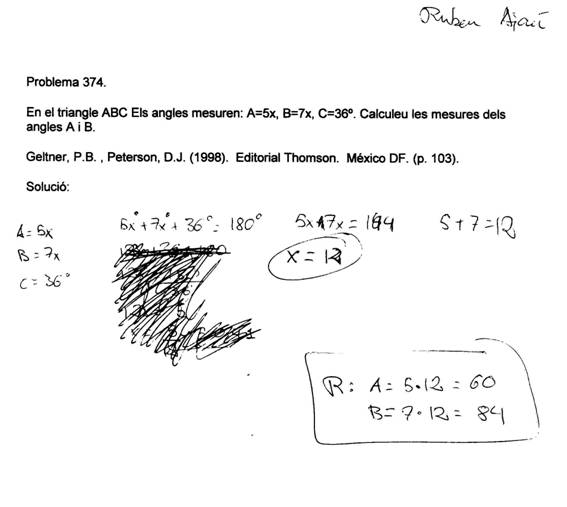 Ruben
Problema 374.
En el triangle ABC Els angles mesuren: A=5x, B=7x, C=36º. Calculeu les mesures dels
angles A i B.
Geltner, P.B. , Peterson, D.J. (1998). Editorial Thomson. México DF. (p. 103).
Solució:
A = 5x
B = 7x
C = 36°
5x° + 7x° + 36° = 180°
5x+7x = 144
5 + 7 = 12
x = 12
R: A = 5·12 = 60
B = 7·12 = 84